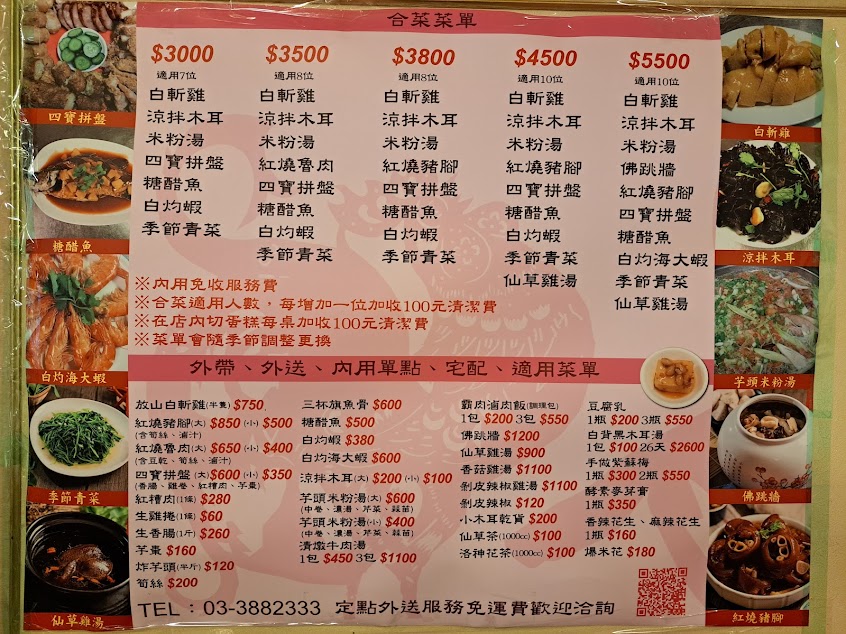 合菜菜單
$3000
適用7位
白斬雞
涼拌木耳
米粉湯
四寶拼盤
糖醋魚
白灼蝦
季節青菜
$3500
適用8位
白斬雞
涼拌木耳
米粉湯
紅燒魯肉
四寶拼盤
糖醋魚
白灼蝦
季節青菜
$3800
適用8位
白斬雞
涼拌木耳
米粉湯
紅燒豬腳
四寶拼盤
糖醋魚
白灼蝦
季節青菜
$4500
適用10位
白斬雞
涼拌木耳
米粉湯
紅燒豬腳
四寶拼盤
糖醋魚
白灼蝦
季節青菜
仙草雞湯
$5500
適用10位
白斬雞
涼拌木耳
米粉湯
佛跳牆
紅燒豬腳
四寶拼盤
糖醋魚
白灼海大蝦
季節青菜
仙草雞湯
※內用免收服務費
※合菜適用人數，每增加一位加收100元清潔費
※在店內切蛋糕每桌加收100元清潔費
※菜單會隨季節調整更換
外帶、外送、內用單點、宅配、適用菜單
放山白斬雞(半隻) $750
紅燒豬腳(大) $850 (小) $500
(含筍絲、滷汁)
紅燒魯肉(大) $650 (小) $400
(含豆乾、筍絲、滷汁)
四寶拼盤(大) $600 (小) $350
(香腸、雞卷、紅槽肉、芋棗)
紅槽肉(1條) $280
生雞捲(1條) $60
生香腸(1斤) $260
芋棗 $160
炸芋頭(半斤) $120
筍絲 $200
三杯旗魚骨 $600
糖醋魚 $500
白灼蝦 $380
白灼海大蝦 $600
涼拌木耳(大) $200 (小) $100
芋頭米粉湯(大) $600
(中卷、濃湯、芹菜、蒜苗)
芋頭米粉湯(小) $400
(中卷、濃湯、芹菜、蒜苗)
清燉牛肉湯
1包 $450 3包 $1100
霸肉滷肉飯(調理包)
1包 $200 3包 $550
佛跳牆 $1200
仙草雞湯 $900
香菇雞湯 $1100
剝皮辣椒雞湯 $1100
剝皮辣椒 $120
小木耳乾貨 $200
仙草茶(1000cc) $100
洛神花茶(1000cc) $100
豆腐乳
1瓶 $200 3瓶 $550
白背黑木耳湯
1包 $100 26天 $2600
手做紫蘇梅
1瓶 $300 2瓶 $550
酵素麥芽膏
1瓶 $350
香辣花生、麻辣花生
1瓶 $160
爆米花 $180
TEL：03-3882333 定點外送服務免運費歡迎洽詢
四寶拼盤
糖醋魚
白灼海大蝦
季節青菜
仙草雞湯
白斬雞
涼拌木耳
芋頭米粉湯
佛跳牆
紅燒豬腳